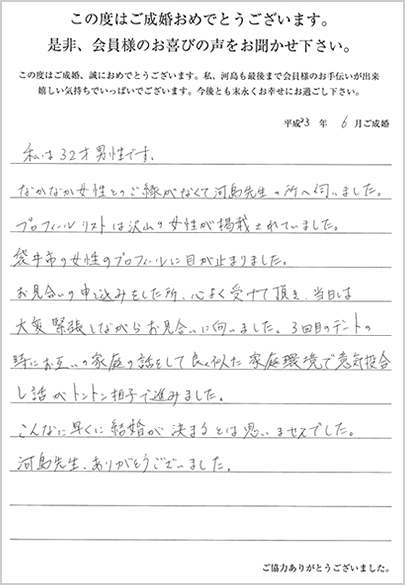 この度はご成婚おめでとうございます。
是非、会員様のお喜びの声をお聞かせ下さい。
この度はご成婚、誠におめでとうございます。私、河島も最後まで会員様のお手伝いが出来
嬉しい気持ちでいっぱいでございます。今後とも末永くお幸せにお過ごし下さい。
平成23年 6月ご成婚
私は32才男性です。
なかなか女性とのご縁がなくて河島先生の所へ伺いました。
プロフィールリストは沢山の女性が掲載されていました。
袋井市の女性のプロフィールに目が止まりました。
お見合いの申し込みをした所、心よく受けて頂き、当日は
大変緊張しながらお見合いに伺いました。3回目のデートの
時にお互いの家庭の話をして良く似た家庭環境で意気投合
し話がトントン拍子で進みました。
こんなに早くに結婚が決まるとは思いませんでした。
河島先生、ありがとうございました。
ご協力ありがとうございました。